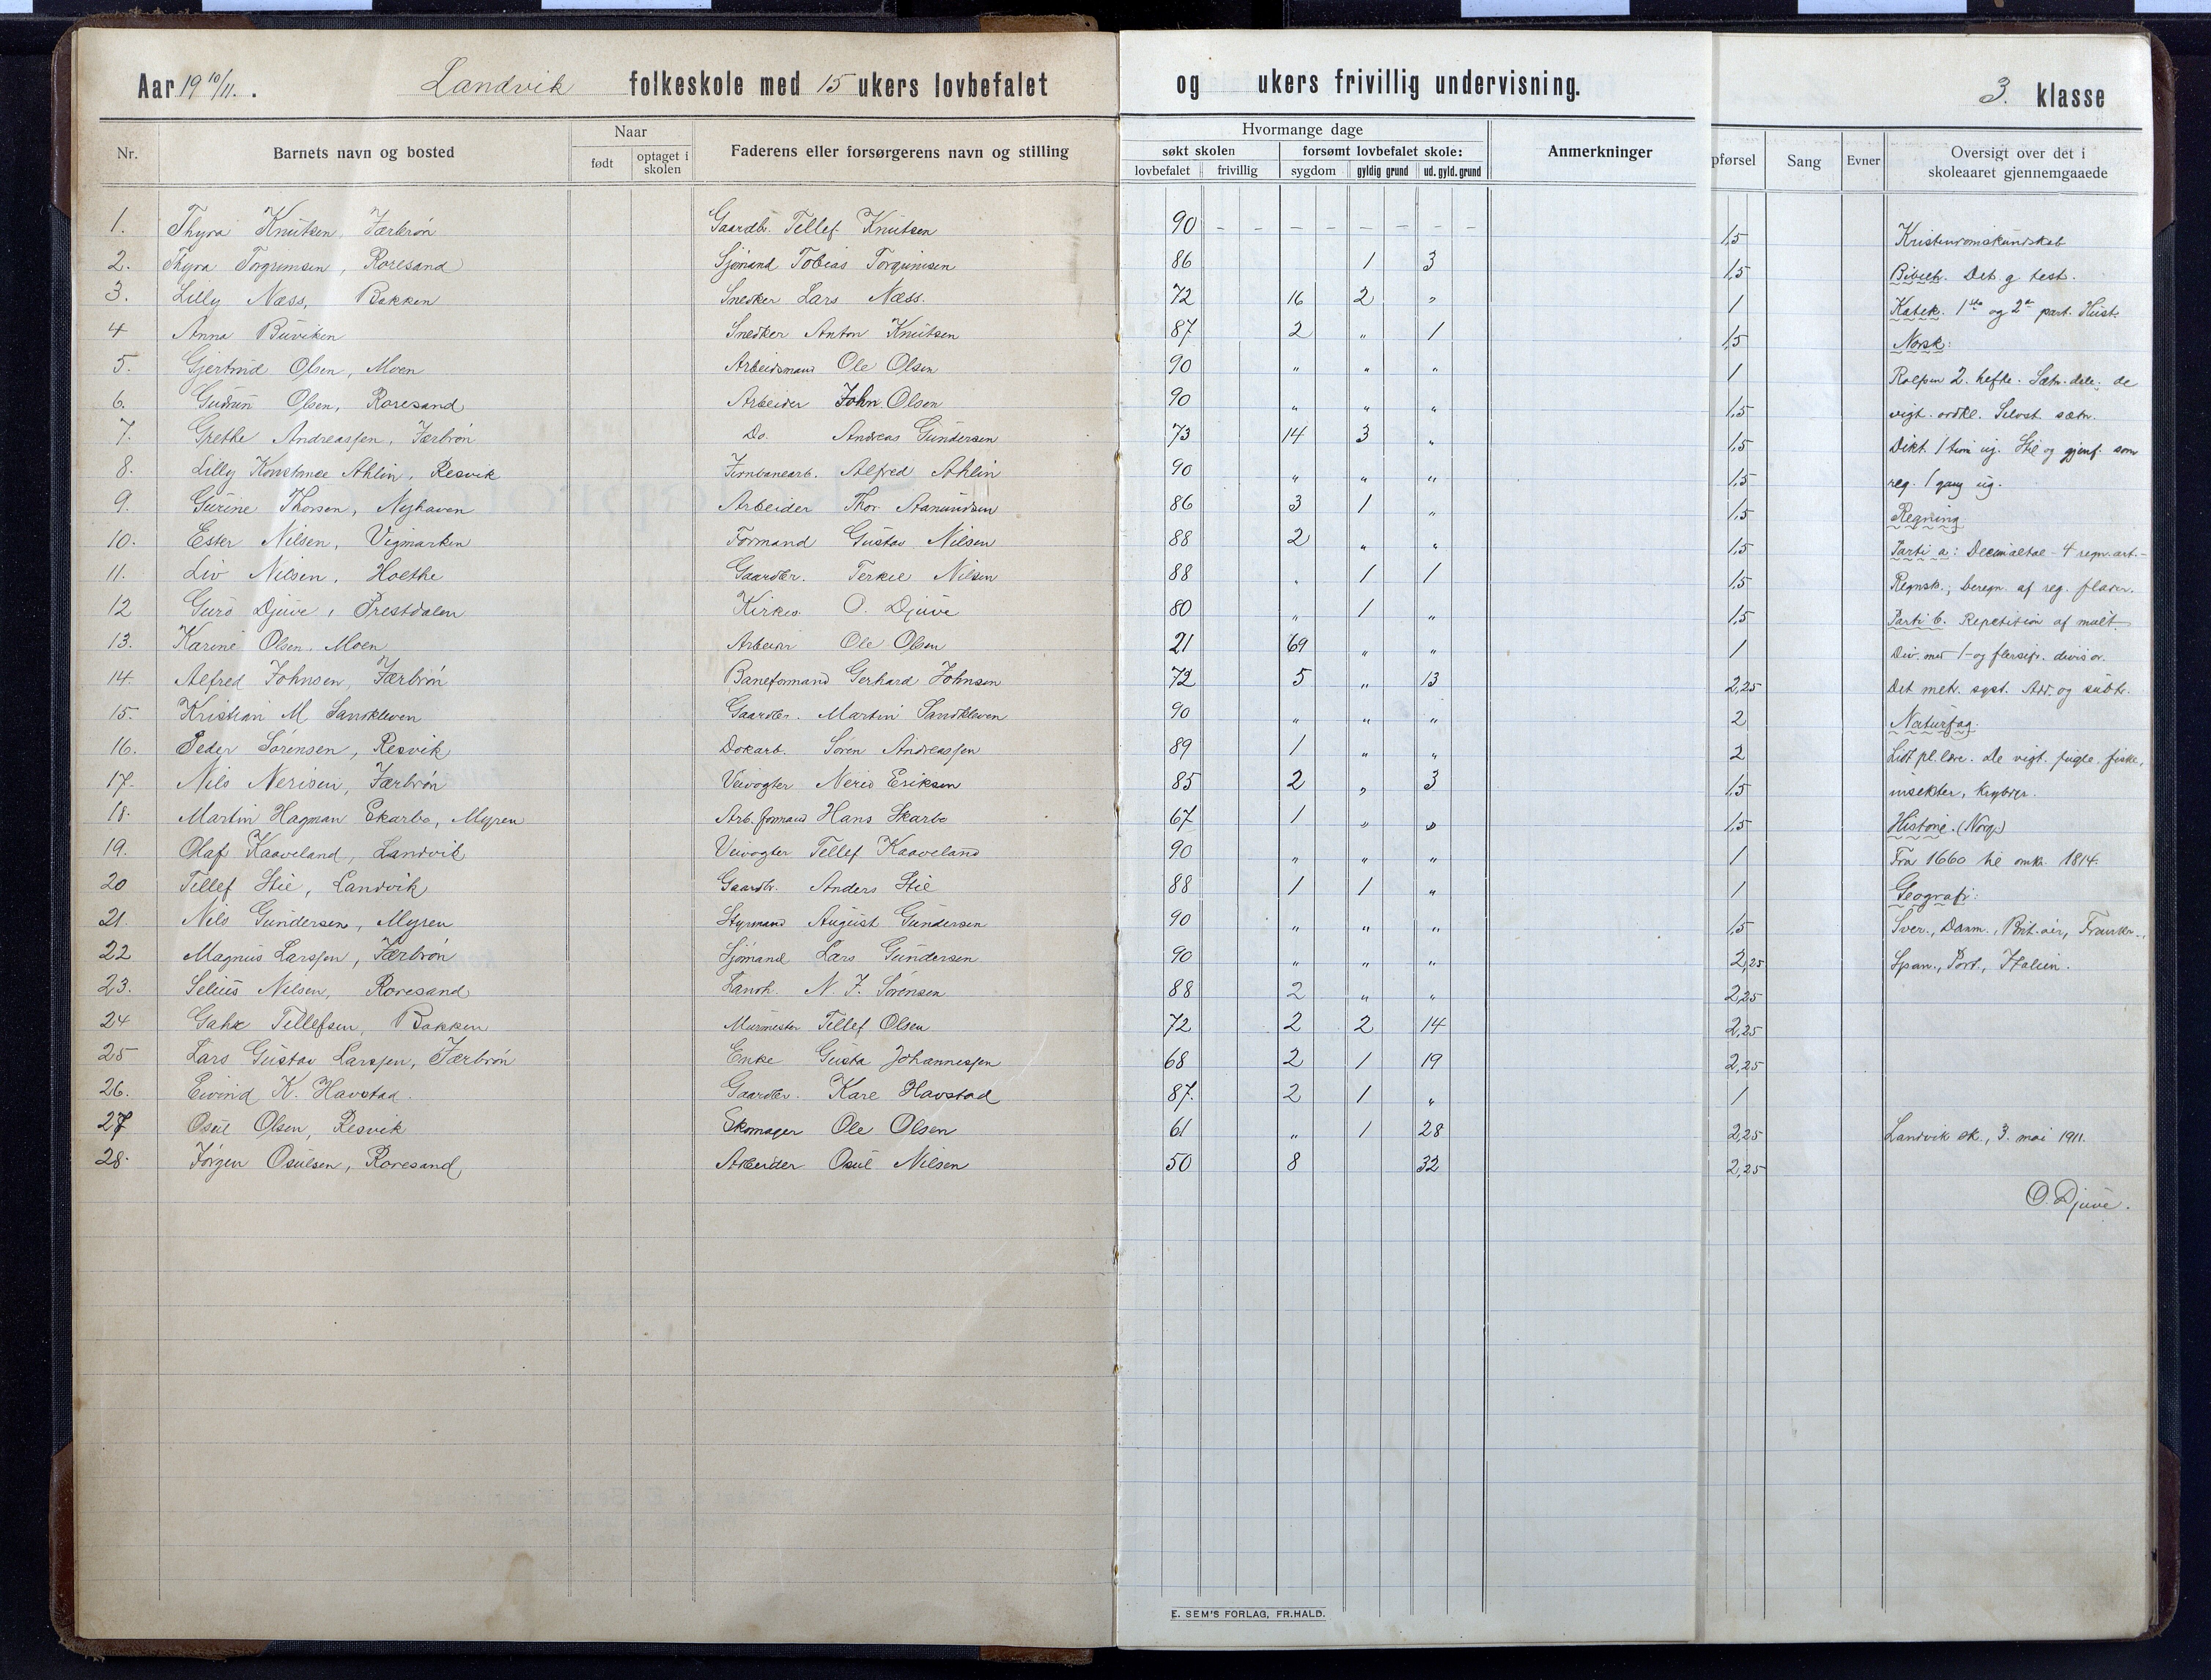 Aar 19 10/11. Landvik folkeskole med 15 ukers lovbefalet og ukers frivillig undervisning. 3. klasse
Nr. Barnets navn og bosted Naar født optaget i skolen Faderens eller forsørgerens navn og stilling Hvormange dage søkt skolen lovbefalet frivillig forsømt lovbefalet skole: sygdom gyldig grund ud. gyld. grund Anmerkninger pførsel Sang Evner Oversigt over det i skoleaaret gjennemgaaede
1. Thyra Knutsen, Færbrón Gaardbr. Tellef Knutsen 90 – – – – – – – – 1,5 Kristendomskundskab
2. Thyra Torgrimsen, Roresand Sjømand Tobias Torgrimsen 86 1 3 1,5 Bibelh. Det g test.
3. Lilly Næss, Bakken Snedker Lars Næss. 72 16 2 " 1 Katek. 1ste og 2n part. Hist.
4 Anna Buviken Snedker Anton Knutsen 87 2 " 1 1,5 Norsk:
5. Gjertrud Olsen, Moen Arbeidsmand Ole Olsen 90 " " " 1 Rolfsen 2. hefte. Sætn. dele. de
6. Gudrun Olsen, Roresand Arbeider John Olsen 90 " " " 1,5 vigt. ordkl. Selvst. sætn.
7. Grethe Andreassen, Færbrón Do. Andreas Gundersen 73 14 3 " 1,5 Dikt. 1 time ug. Stil og gjenf. som
8. Lilly Konstance Ahlin, Resvik Jernbanearb. Alfred Ahlin 90 " " " 1,5 reg. 1 gang ug.
9. Gurine Thorsen, Nyhaven Arbeider Thor Aamundsen 86 3 1 " 1,5 Regning
10. Ester Nilsen, Vigmarken Formand Gustav Nilsen 88 2 " " 1,5 Parti a: Decimaltal – 4 regn. art. –
11. Liv Nilsen, Holthe Gaardbr. Terkel Nilsen 88 " 1 1 1,5 Regnsk.; beregn. af reg. flader.
12 Guro Djuve, Prestdalen Kirkes. O. Djuve 80 " 1 " 1,5 Parti b. Repetition af mult.
13. Karine Olsen, Moen Arbeider Ole Olsen 21 69 " " 1 Div. med 1- og flersifr. divisor.
14. Alfred Johnsen, Færbrón Baneformand Gerhard Johnsen 72 5 " 13 2,25 Det metr. syst. Add. og subtr.
15. Kristian M Sandkleven Gaardbr. Martin Sandkleven 90 " " " 2 Naturfag.
16. Peder Sørensen, Resvik Dokarb. Søren Andreassen 89 1 " " 2 Lidt pl. lære. De vigt. fugle, fiske,
17. Nils Nerisen, Færbrón Veivogter Neris Eriksen 85 2 " 3 1,5 insekter, krybdyr.
18. Martin Hagman Skarbo, Myren Arb. formand Hans Skarbo 67 1 " " 1,5 Historie. (Norg.)
19. Olaf Kaaveland, Landvik Veivogter Tellef Kaaveland 90 " " " 1 Fra 1660 til omk. 1814.
20 Tellef Stie, Landvik Gaardbr. Anders Stie 88 1 1 " 1 Geografi:
21. Nils Gundersen, Myren Styrmand August Gundersen 90 " " " 1,5 Sver., Danm., Brit. øer, Frankr.,
22 Magnus Larssen, Færbrón Sjømand Lars Gundersen 90 " " " 2,25 Span., Port., Italien.
23. Selius Nilsen, Roresand Landh. N. J. Sørensen 88 2 " " 2,25
24 Tellefsen, Bakken Murmester Tellef Olsen 72 2 2 14 2,25
25 Lars Gustav Larssen, Færbrón Enke Gusta Johannessen 68 2 1 19 2,25
26. Eivind K. Havstad. Gaardbr. Kare Havstad 87. 2 1 " 1
27 Osul Olsen, Resvik Skomager Ole Olsen 61 " 1 28 2,25 Landvik sk., 3. mai 1911.
28. Jørgen Osulsen, Roresand Arbeider Osul Nilsen 50 8 32 2,25
O. Djuve.
E. SEM'S FORLAG, FR.HALD.